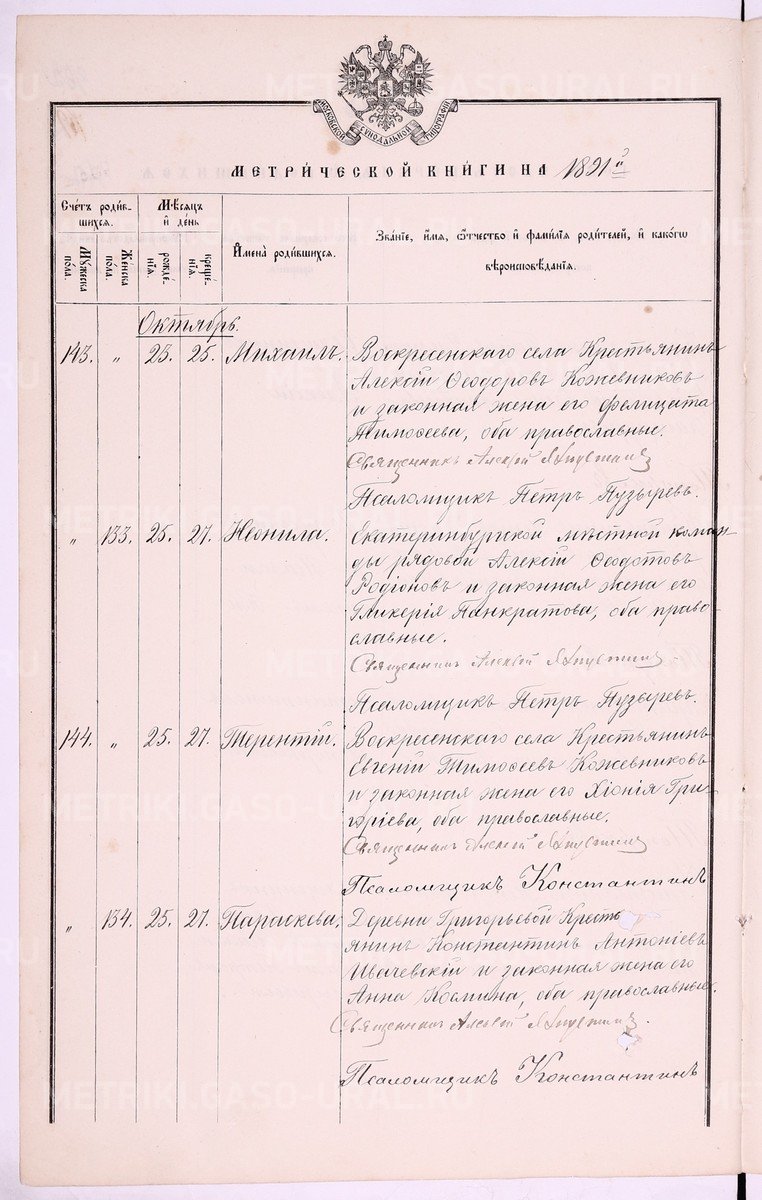 МОСКОВСКОЙ СѴНОДАЛЬНОЙ ТИПОГРАФІИ
МЕТРИ́ЧЕСКОЙ КНИ́ГИ НА 1891
Сче́тъ роди́в-
шихсѧ.
Мѣ́сѧцъ
и҆ де́нь
Мꙋ́жеска
по́ла.
Же́нска
по́ла.
рожде́-
нїѧ.
креще́-
нїѧ.
И҆мена̀ роди́вшихсѧ.
Зва́нїе, и҆́мѧ, ѻ҆́тчество и҆ фами́лїѧ роди́телей, и҆ како́гѡ
вѣроисповѣ́данїѧ.
Октябрь.
143. " 23. 25. Михаилъ. Воскресенскаго села Крестьянинъ
Алексій Ѳеодоровъ Кожевниковъ
и законная жена его Фелицата
Тимоѳеева, оба православные.
Священникъ Алексѣй
Псаломщикъ Петръ Пузыревъ.
" 133. 25. 27. Неонила. Екатеринбургской мѣстной коман-
ды рядовой Алексій Ѳеодотовъ
Родіоновъ и законная жена его
Гликерія Панкратова, оба право-
славные.
Священникъ Алексѣй
Псаломщикъ Петръ Пузыревъ.
144. " 25. 27. Терентій. Воскресенскаго села Крестьянинъ
Евгеній Тимоѳеевъ Кожевниковъ
и законная жена его Хіонія Гри-
горіева, оба православные.
Священникъ Алексѣй
Псаломщикъ Константинъ
" 134. 25. 27. Параскева, Деревни Григорьевой Кресть
янинъ Константинъ Антоніевъ
Ивачевскій и законная жена его
Анна Космина, оба православные.
Священникъ Алексѣй
Псаломщикъ Константинъ
METRIKI.GASO-URAL.RU